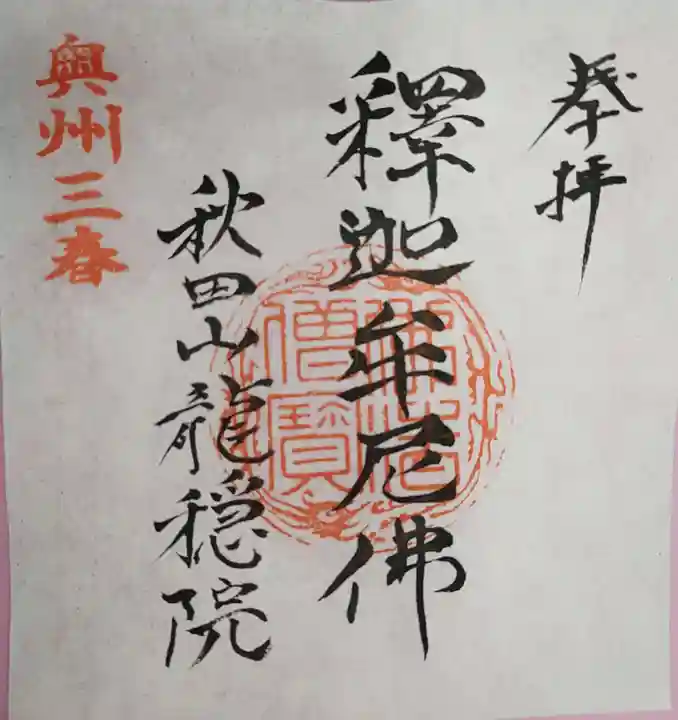 奉拝
釋迦牟尼佛
佛法
僧寶
秋田山龍穏院
奥州三春